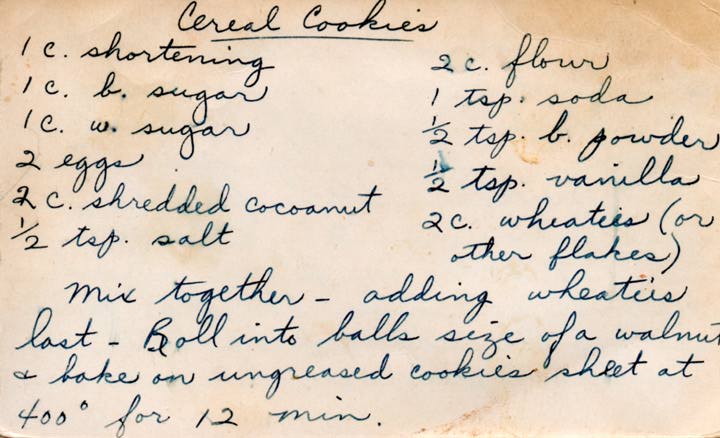 Cereal Cookies
1 c. shortening
1 c. b. sugar
1 c. w. sugar
2 eggs
2 c. shredded cocoanut
1/2 tsp. salt
2 c. flour
1 tsp. soda
1/2 tsp. b. powder
1/2 tsp. vanilla
2 c. wheaties (or
other flakes)
Mix together - adding wheaties
last - Roll into balls size of a walnut
& bake on ungreased cookies sheet at
400° for 12 min.